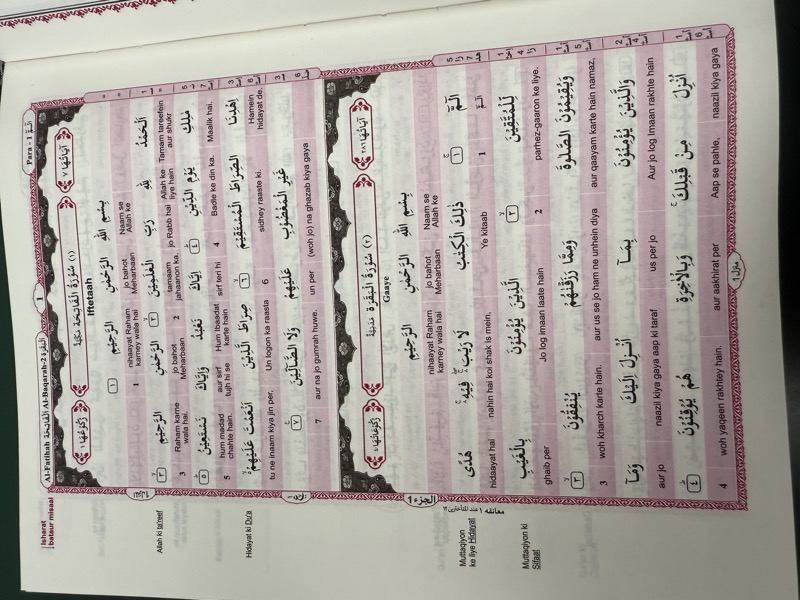 Al-Fatihah الفاتحة Al-Baqarah البقرة
1
Para - 1 الٓمّٓ
Isharat
bataur misaal
رُكُوْعُهَا ١
(١) سُوْرَةُ الْفَاتِحَةِ مَكِّيَّةٌ
اٰيَاتُهَا ٧
Iftetaah
بِسْمِ اللّٰهِ الرَّحْمٰنِ الرَّحِيْمِ ١
Naam se Allah ke jo bahot Meharbaan nihaayat Raham karney wala hai 1
اَلْحَمْدُ لِلّٰهِ رَبِّ الْعٰلَمِيْنَ ٢ الرَّحْمٰنِ الرَّحِيْمِ ٣
Tamam tareefein aur shukr Allah ke liye hain jo Rabb hai tamaam jahaanon ka. 2 jo bahot Meharbaan Raham karne wala hai. 3
Allah ki ta'reef
مٰلِكِ يَوْمِ الدِّيْنِ ٤ اِيَّاكَ نَعْبُدُ وَاِيَّاكَ نَسْتَعِيْنُ ٥
Maalik hai. Badle ke din ka. 4 sirf teri hi Hum Ibaadat karte hain. aur sirf tujh hi se hum madad chahte hain. 5
اِهْدِنَا الصِّرَاطَ الْمُسْتَقِيْمَ ٦ صِرَاطَ الَّذِيْنَ اَنْعَمْتَ عَلَيْهِمْ
Hamein hidayat de. sidhey raaste ki. 6 Un logon ka raasta tu ne inaam kiya jin per,
Hidayat ki Du'a
غَيْرِ الْمَغْضُوْبِ عَلَيْهِمْ وَلَا الضَّآلِّيْنَ ٧
(woh jo) na ghazab kiya gaya un per aur na jo gumrah huwe. 7
رُكُوْعَاتُهَا ٤٠
(٢) سُوْرَةُ الْبَقَرَةِ مَدَنِيَّةٌ
اٰيَاتُهَا ٢٨٦
Gaaye
بِسْمِ اللّٰهِ الرَّحْمٰنِ الرَّحِيْمِ
Naam se Allah ke jo bahot Meharbaan nihaayat Raham karney wala hai
الٓمّٓ ١ ذٰلِكَ الْكِتٰبُ لَا رَيْبَ فِيْهِ هُدًى
الٓمّٓ 1 Ye kitaab nahin hai koi shak is mein, hidaayat hai
الجزء ١
معانقه ١ عند المتأخرين ١٢
Muttaqiyon
ke liye Hidayat
لِّلْمُتَّقِيْنَ ٢ الَّذِيْنَ يُؤْمِنُوْنَ بِالْغَيْبِ
parhez-gaaron ke liye. 2 Jo log imaan laate hain ghaib per
Muttaqiyon ki
Sifaat
وَيُقِيْمُوْنَ الصَّلٰوةَ وَمِمَّا رَزَقْنٰهُمْ يُنْفِقُوْنَ ٣
aur qaayam karte hain namaz, aur us se jo ham ne unhein diya woh kharch karte hain. 3
وَالَّذِيْنَ يُؤْمِنُوْنَ بِمَآ اُنْزِلَ اِلَيْكَ وَمَآ
Aur jo log Imaan rakhte hain us per jo naazil kiya gaya aap ki taraf aur jo
اُنْزِلَ مِنْ قَبْلِكَ وَبِالْاٰخِرَةِ هُمْ يُوْقِنُوْنَ ٤
naazil kiya gaya Aap se pahle, aur aakhirat per woh yaqeen rakhtey hain. 4
منزل ١